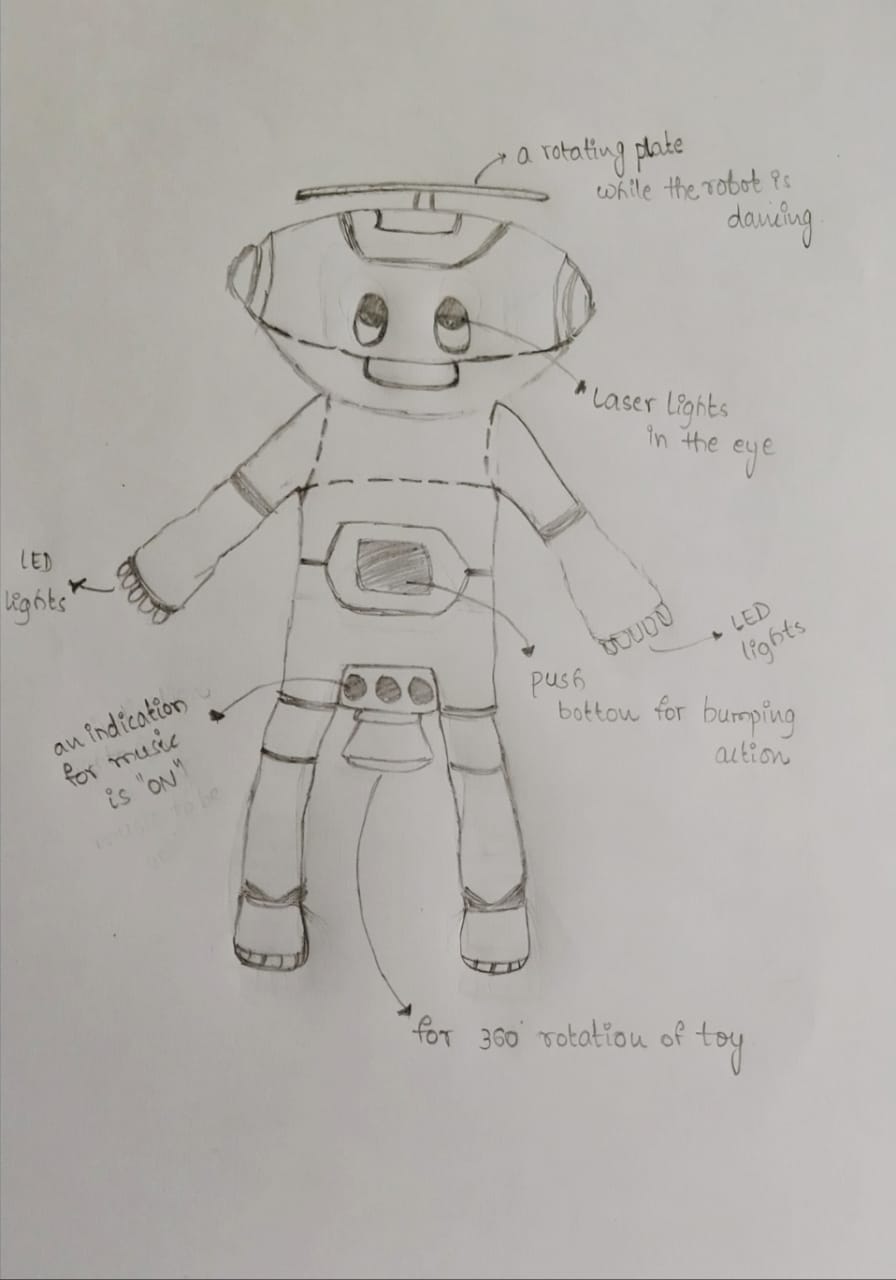 a rotating plate
while the robot is
dancing.
Laser Lights
in the eye
LED
lights
LED
lights
push
botton for bumping
action
an indication
for music
is "ON"
for 360° rotation of toy